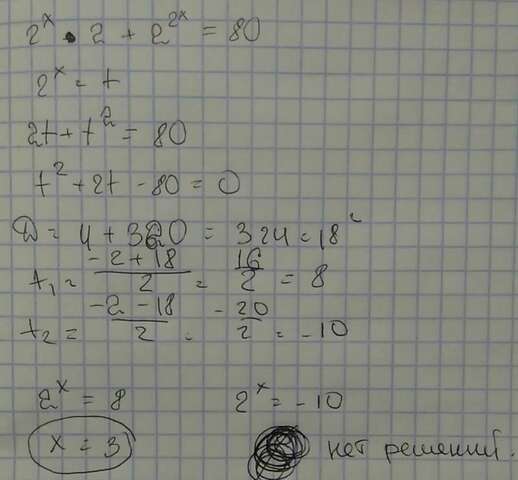 2^x • 2 + 2^{2x} = 80
2^x = t
2t + t^2 = 80
t^2 + 2t - 80 = 0
D = 4 + 320 = 324 = 18^2
t_1 = \frac{-2+18}{2} = \frac{16}{2} = 8
t_2 = \frac{-2-18}{2} = \frac{-20}{2} = -10
2^x = 8 2^x = -10
x = 3 нет решений.